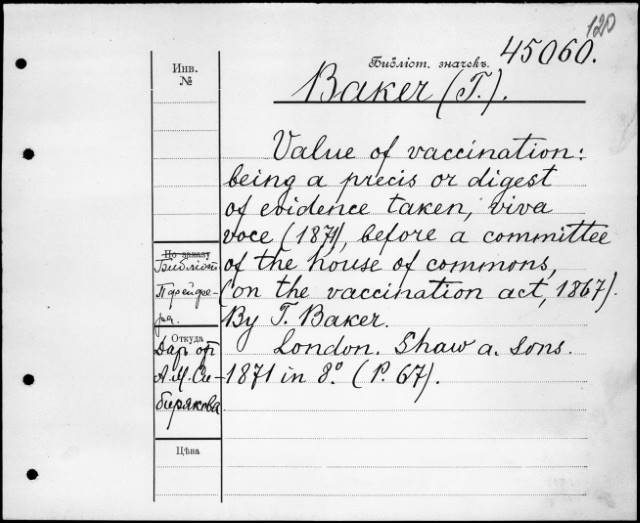 120
45060.
Библіот. значекъ.
Baker (T.).
Инв.
№
Value of vaccination:
being a precis or digest
of evidence taken, viva
voce (1871), before a committee
of the house of commons,
(on the vaccination act, 1867).
By T. Baker.
London. Shaw a. Sons.
1871 in 8.º (P. 67).
По заказу
Библіот.
Пфейфе-
ра.
Откуда
Даръ отъ
А. М. Си-
бирякова
Цѣна